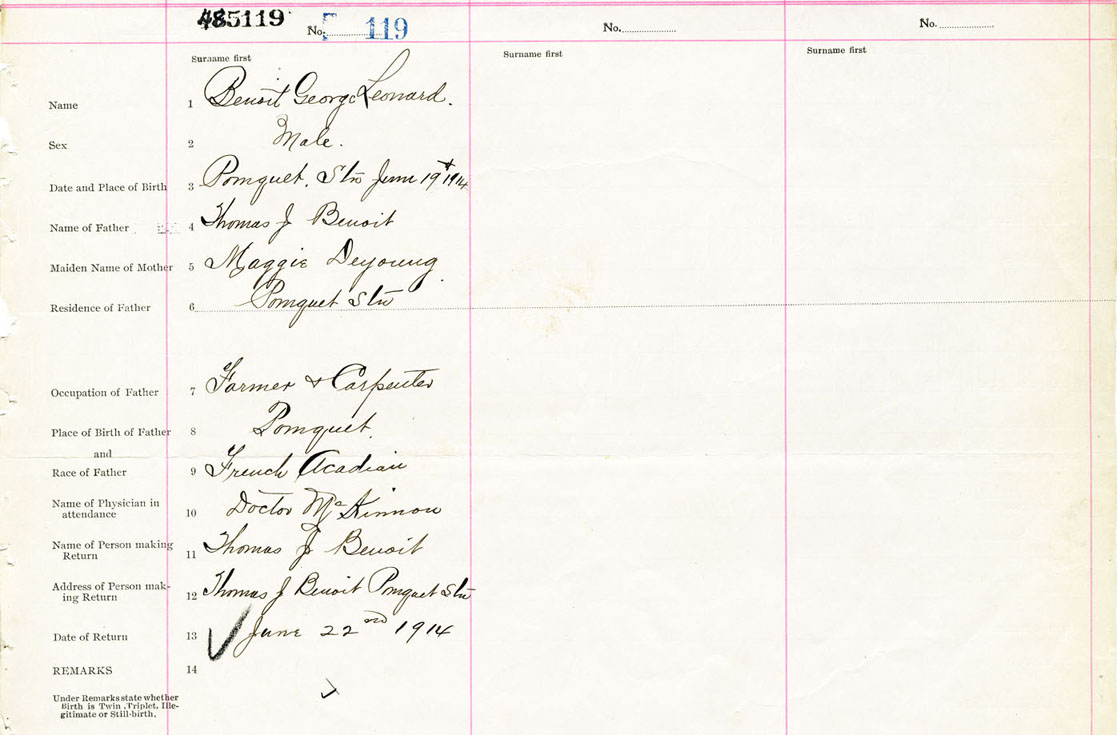 485119
No. 119
No.
No.
Surname first
Surname first
Surname first
Name 1 Benoit George Leonard.
Sex 2 Male.
Date and Place of Birth 3 Pomquet. Stn June 19th 1914
Name of Father 4 Thomas J Benoit
Maiden Name of Mother 5 Maggie Deyoung
Residence of Father 6 Pomquet Stn
Occupation of Father 7 Farmer & Carpenter
Place of Birth of Father 8 Pomquet.
and
Race of Father 9 French Acadian
Name of Physician in
attendance 10 Doctor McKinnon
Name of Person making
Return 11 Thomas J Benoit
Address of Person mak-
ing Return 12 Thomas J Benoit Pomquet Stn
Date of Return 13 June 22nd 1914
REMARKS 14
Under Remarks state whether
Birth is Twin, Triplet, Ille-
gitimate or Still-birth.